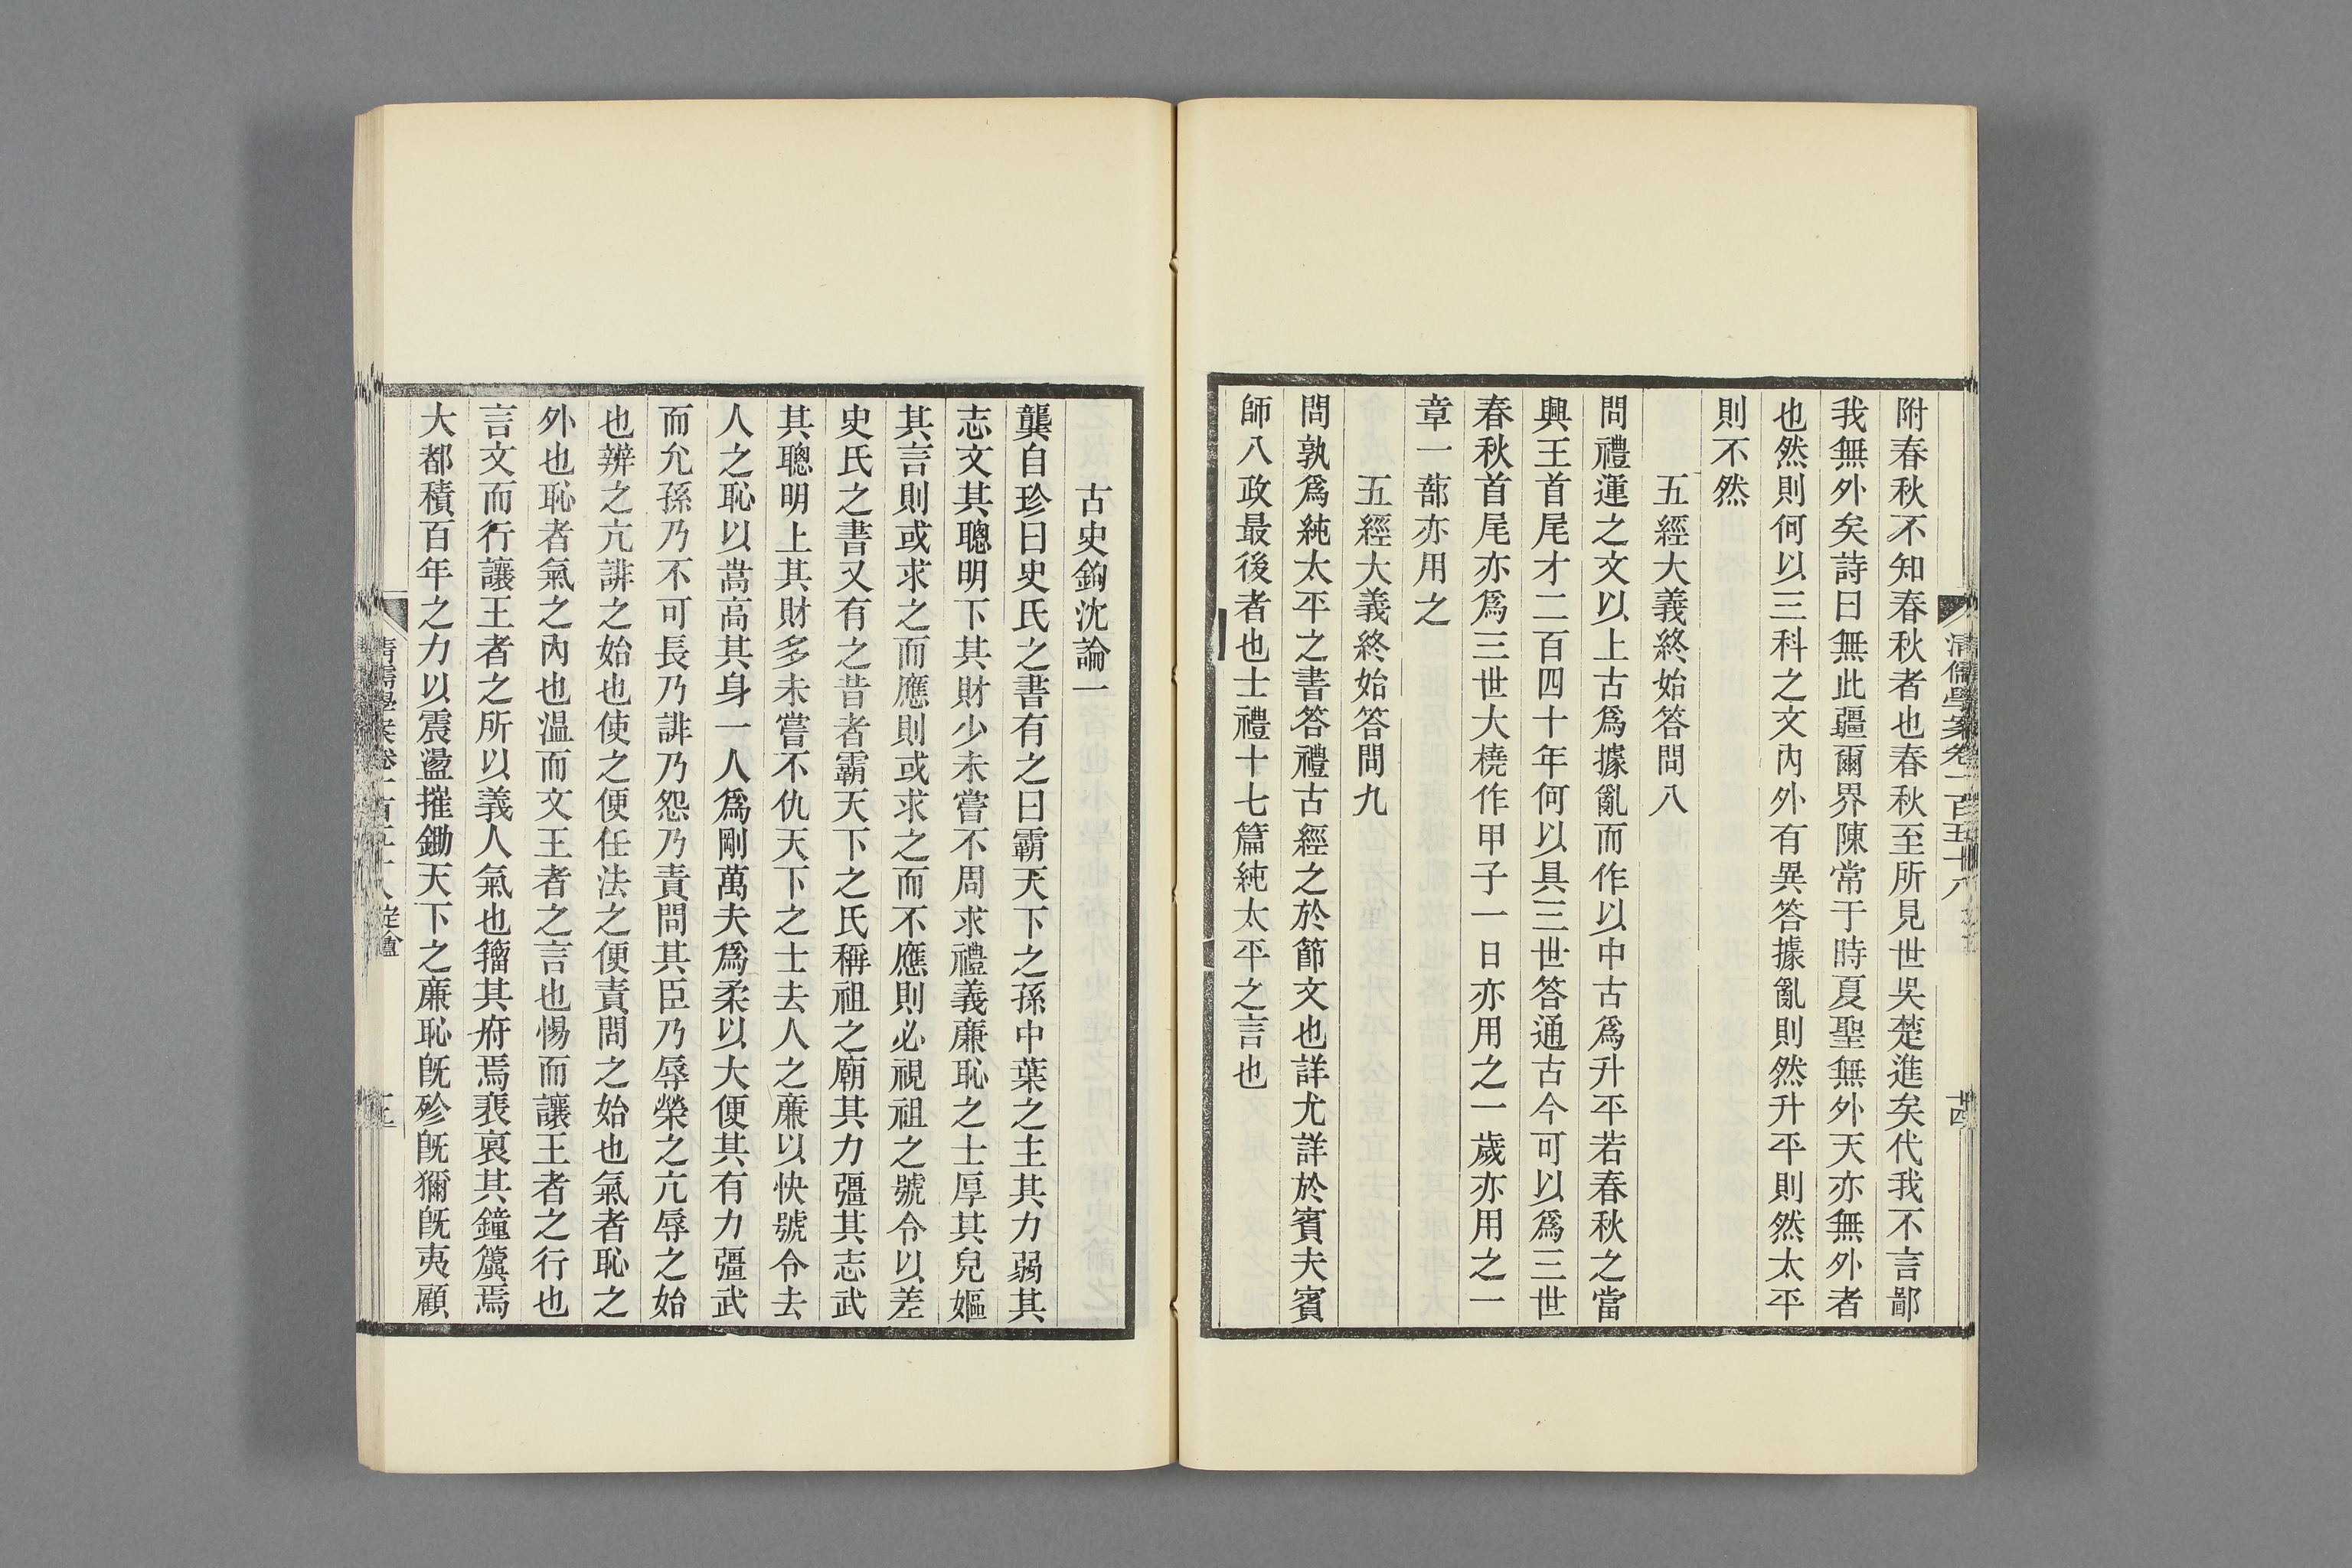 附春秋不知春秋者也春秋至所見世吳楚進矣代我不言鄙
我無外矣詩曰無此疆爾界陳常于時夏聖無外天亦無外者
也然則何以三科之文內外有異答據亂則然升平則然太平
則不然
五經大義終始答問八
問禮運之文以上古爲據亂而作以中古爲升平若春秋之當
興王首尾才二百四十年何以具三世答通古今可以爲三世
春秋首尾亦爲三世大橈作甲子一日亦用之一歲亦用之一
章一蔀亦用之
五經大義終始答問九
問孰爲純太平之書答禮古經之於節文也詳尤詳於賓夫賓
師八政最後者也士禮十七篇純太平之言也
清儒學案卷一百五十八
十四
古史鉤沈論一
龔自珍曰史氏之書有之曰霸天下之孫中葉之主其力弱其
志文其聰明下其財少未嘗不周求禮義廉恥之士厚其皃嫗
其言則或求之而應則或求之而不應則必視祖之號令以差
史氏之書又有之昔者霸天下之氏稱祖之廟其力彊其志武
其聰明上其財多未嘗不仇天下之士去人之廉以快號令去
人之恥以嵩高其身一人爲剛萬夫爲柔以大便其有力彊武
而允孫乃不可長乃誹乃怨乃責問其臣乃辱榮之亢辱之始
也辨之亢誹之始也使之便任法之便責問之始也氣者恥之
外也恥者氣之內也溫而文王者之言也惕而讓王者之行也
言文而行讓王者之所以養人氣也籀其府焉裴裒其鐘簴焉
大都積百年之力以震盪摧鋤天下之廉恥旣殄旣獮旣夷顧
清儒學案卷一百五十八 定盦